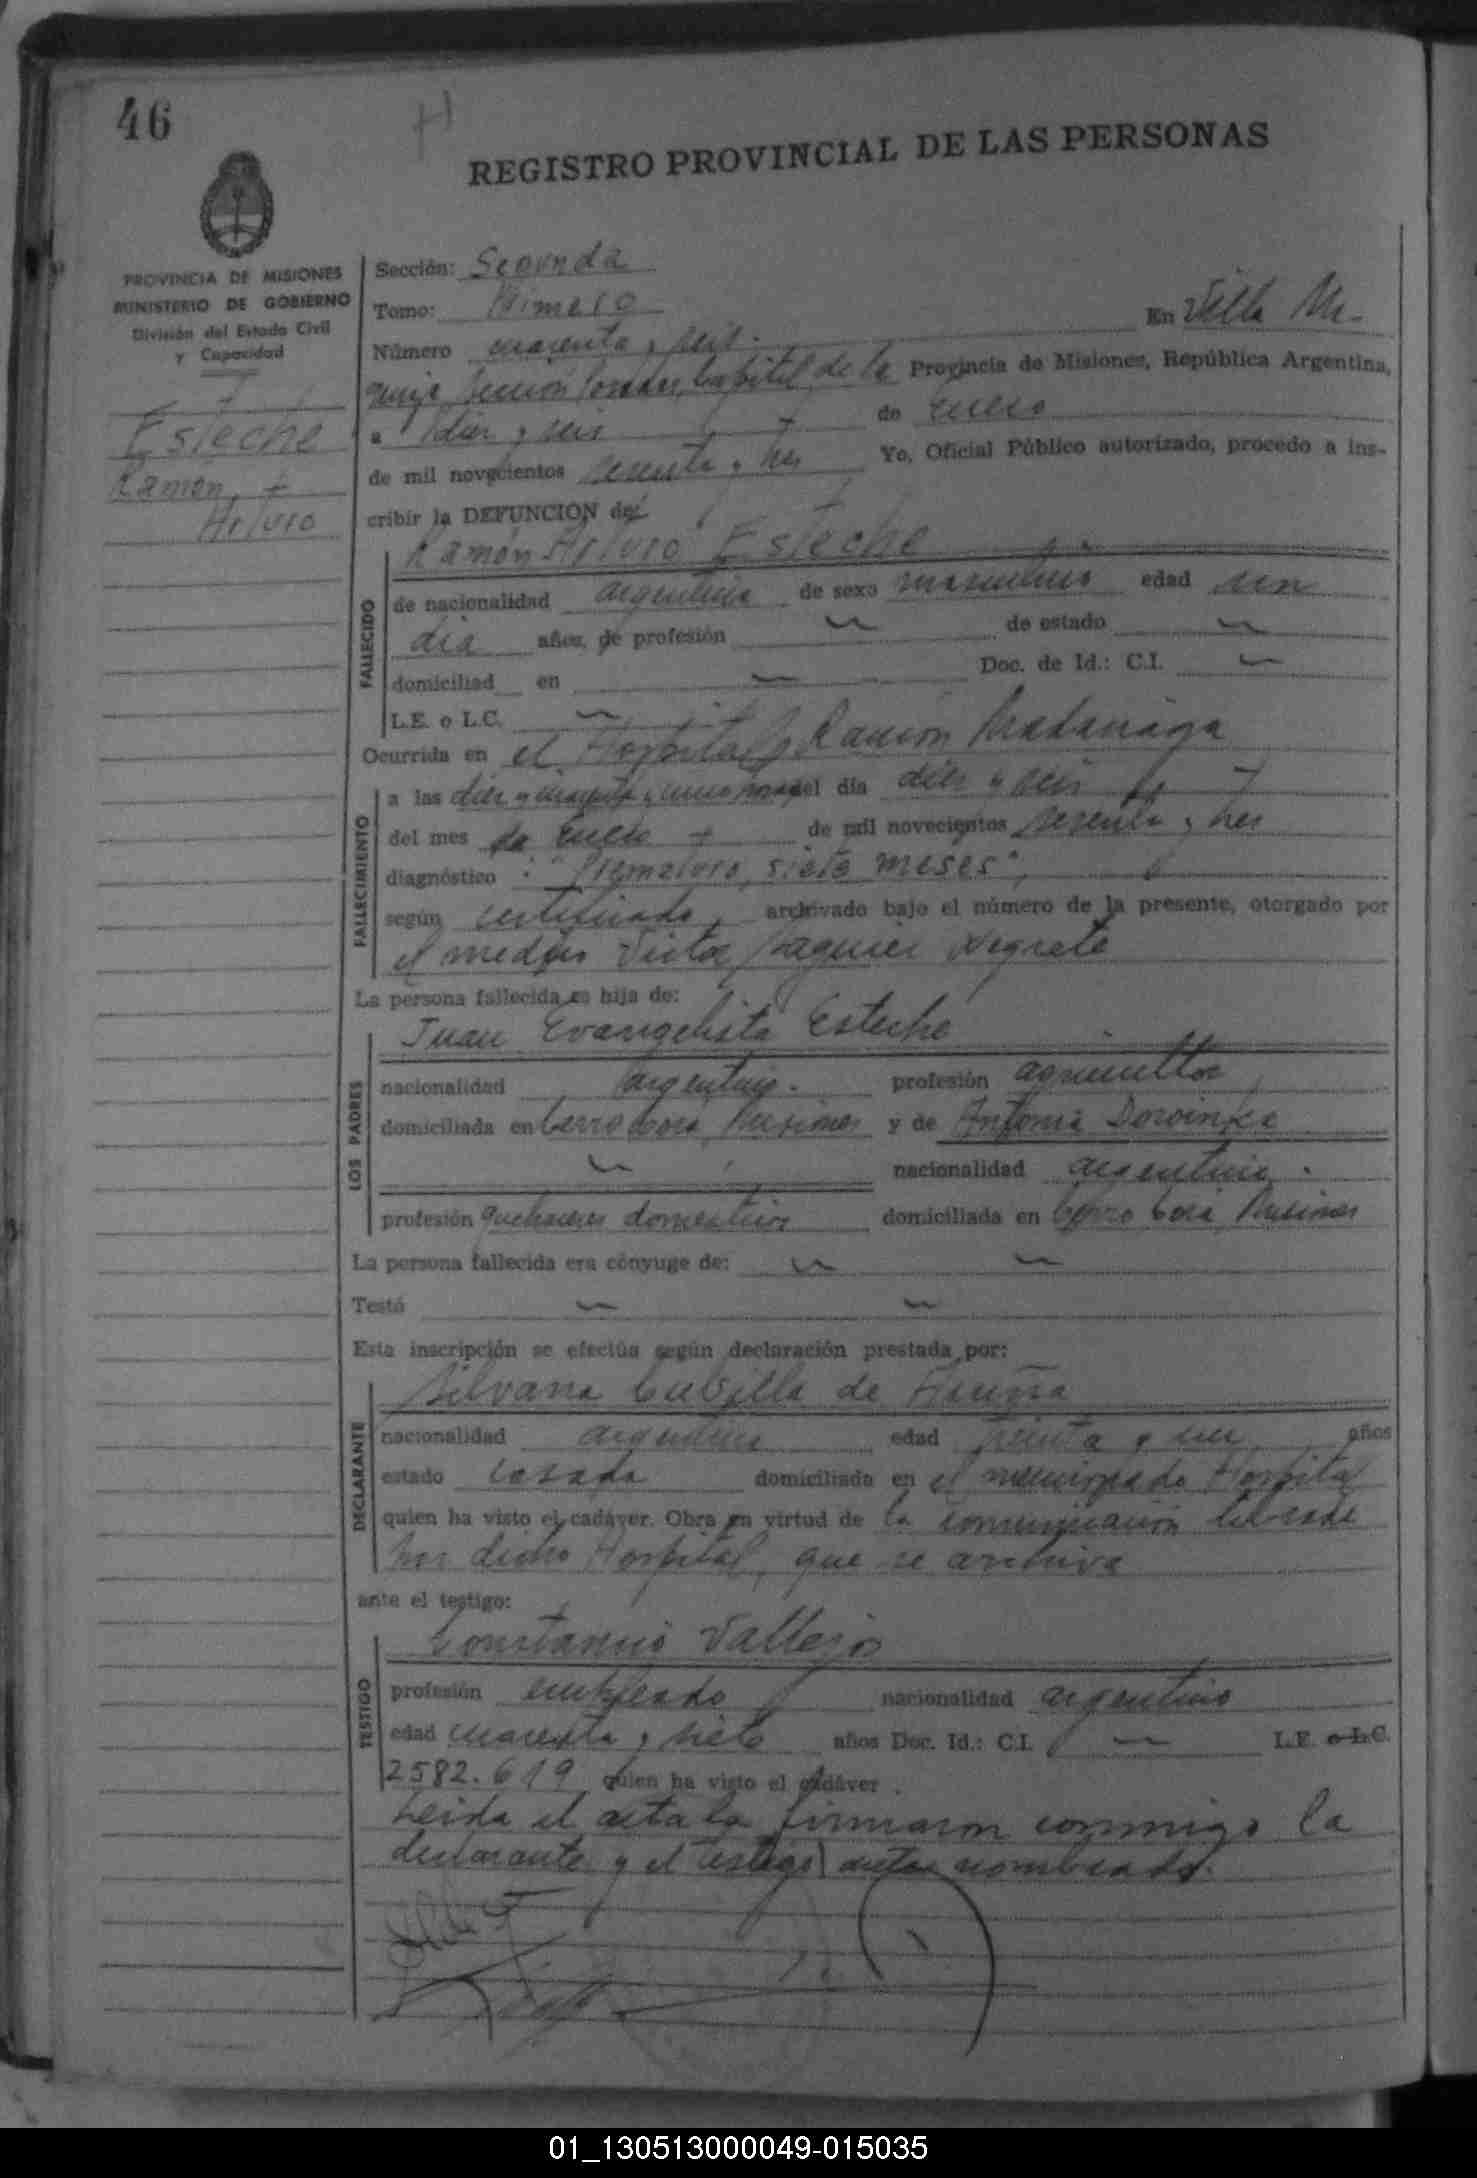 46
REGISTRO PROVINCIAL DE LAS PERSONAS
PROVINCIA DE MISIONES
MINISTERIO DE GOBIERNO
División del Estado Civil
y Capacidad
Esteche
Ramón
Arturo
Sección: Segunda
Tomo: Primero
En Villa Ur-
Número cuarenta y seis.
quiza Sección Posadas, Capital de la Provincia de Misiones, República Argentina,
a diez y seis de enero
de mil novecientos sesenta y tres Yo, Oficial Público autorizado, procedo a ins-
cribir la DEFUNCION de:
Ramón Arturo Esteche
FALLECIDO
de nacionalidad argentina de sexo masculino edad un
dia años, de profesión de estado
domiciliad en Doc. de Id.: C.I.
L.E. o L.C.
Ocurrida en el Hospital Ramón Madariaga
FALLECIMIENTO
a las diez y cuarenta y cinco horas del día diez y seis
del mes de enero de mil novecientos sesenta y tres
diagnóstico "Prematuro, siete meses",
según certificado, archivado bajo el número de la presente, otorgado por
el médico Victor Jaquier Negrete
La persona fallecida es hija de:
LOS PADRES
Juan Evangelista Esteche
nacionalidad argentino. profesión agricultor
domiciliada en Cerro Corá, Misiones y de Antonia
nacionalidad argentina.
profesión quehaceres domésticos domiciliada en Cerro Corá, Misiones
La persona fallecida era cónyuge de:
Testó
Esta inscripción se efectúa según declaración prestada por:
DECLARANTE
Silvana Cubilla de
nacionalidad argentina edad treinta y un años
estado casada domiciliada en el mencionado Hospital
quien ha visto el cadáver. Obra en virtud de la comunicación librada
por dicho Hospital, que se archiva
ante el testigo:
TESTIGO
Constancio Vallejos
profesión empleado nacionalidad argentino
edad cuarenta y siete años Doc. Id.: C.I. L.E. o L.C.
2582.619 quien ha visto el cadáver.
Leida el acta la firmaron conmigo la
declarante y el testigo antes nombrado.
01_130513000049-015035